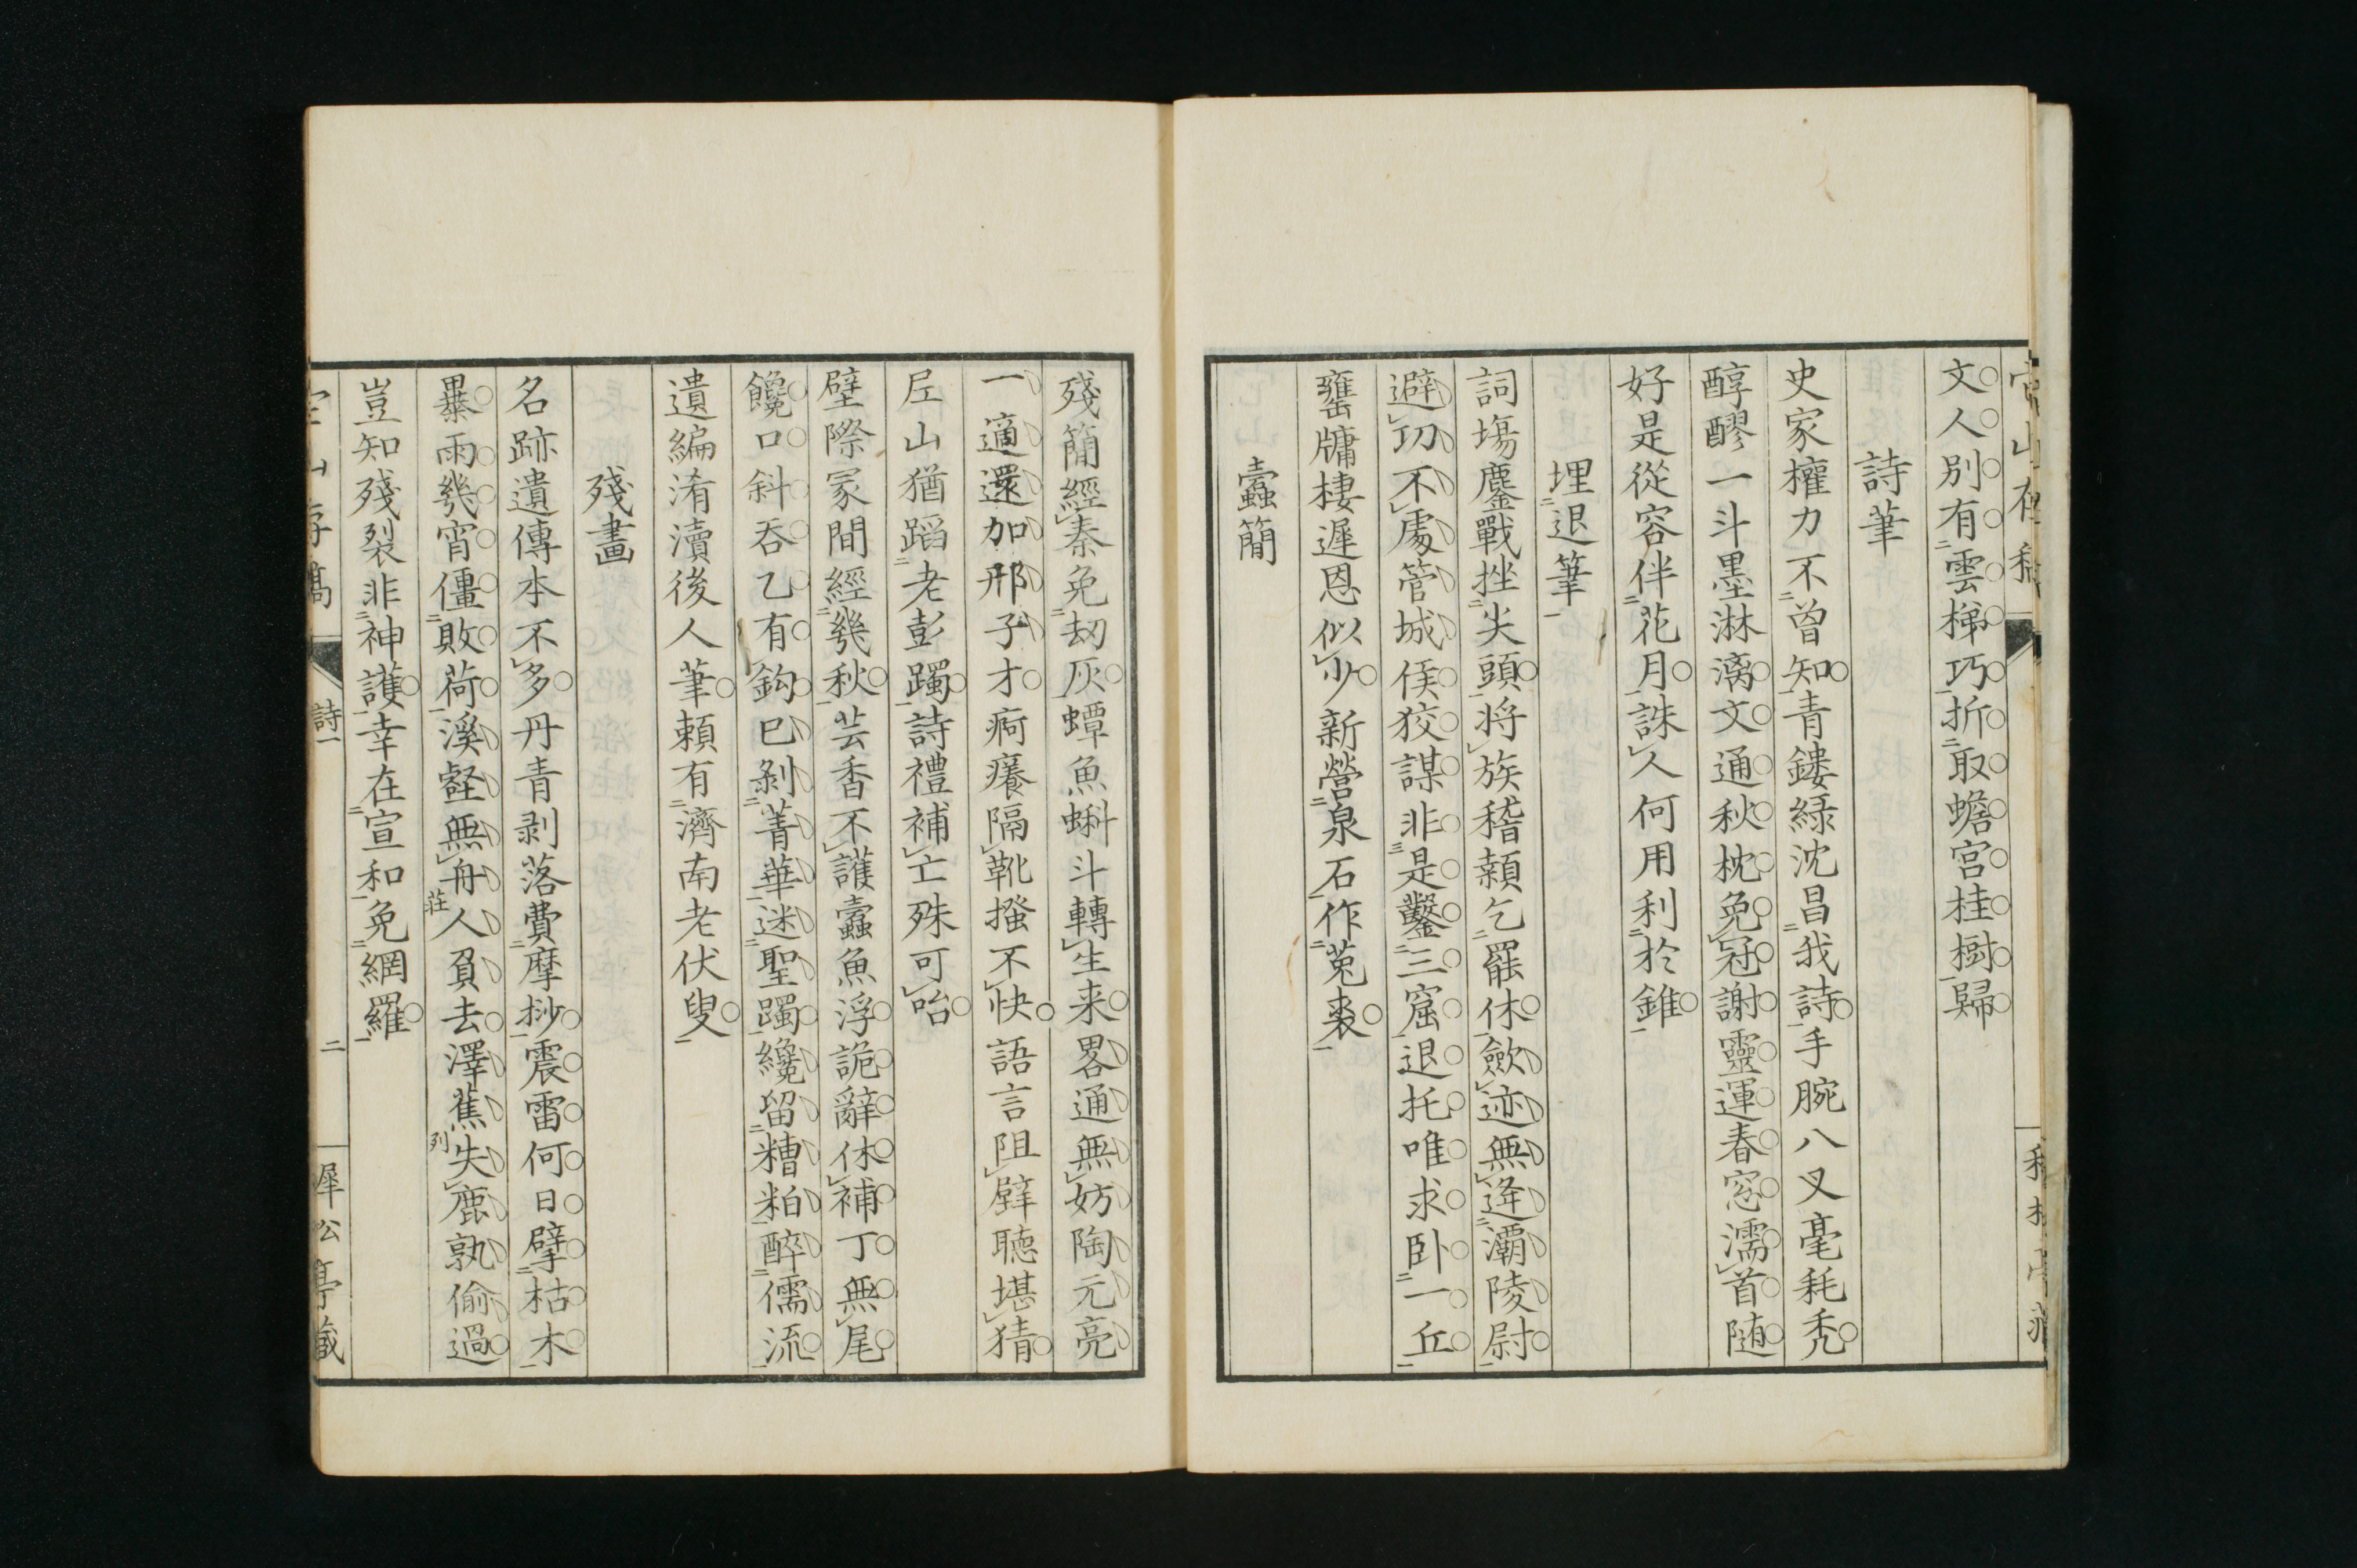 文人別有雲梯巧折取蟾宮桂樹歸
詩筆
史家權力不曾知青鏤緑沈昌我詩手腕八叉毫耗禿
醇醪一斗墨淋漓文通秋枕免冠謝靈運春窓濡首随
好是從容伴花月誅人何用利於錐
埋退筆
詞場鏖戰挫尖頭将族稽顙乞罷休歛迹無逢灞陵尉
避功不處管城侯狡謀非是鑿三窟退托唯求卧一丘
甕牖棲遲恩似少新營泉石作菟裘
蠹簡
殘簡經秦免刼灰蟫魚蝌斗轉生来畧通無妨陶元亮
一適還加邢子才痾癢隔靴搔不快語言阻壁聽堪猜
𡰥山猶蹈老彭躅詩禮補亡殊可咍
壁際冢間經幾秋芸香不護蠹魚浮詭辭休補丁無尾
饞口斜吞乙有鈎巳剝菁華迷聖躅纔留糟粕醉儒流
遺編淆瀆後人筆頼有濟南老伏叟
殘畫
名跡遺傳本不多丹青剥落費摩挱震雷何日擘枯木
暴雨幾宵僵敗荷溪壑無舟人負去澤蕉失鹿孰偷過
莊
列
豈知殘裂非神護幸在宣和免網羅
詩一
二